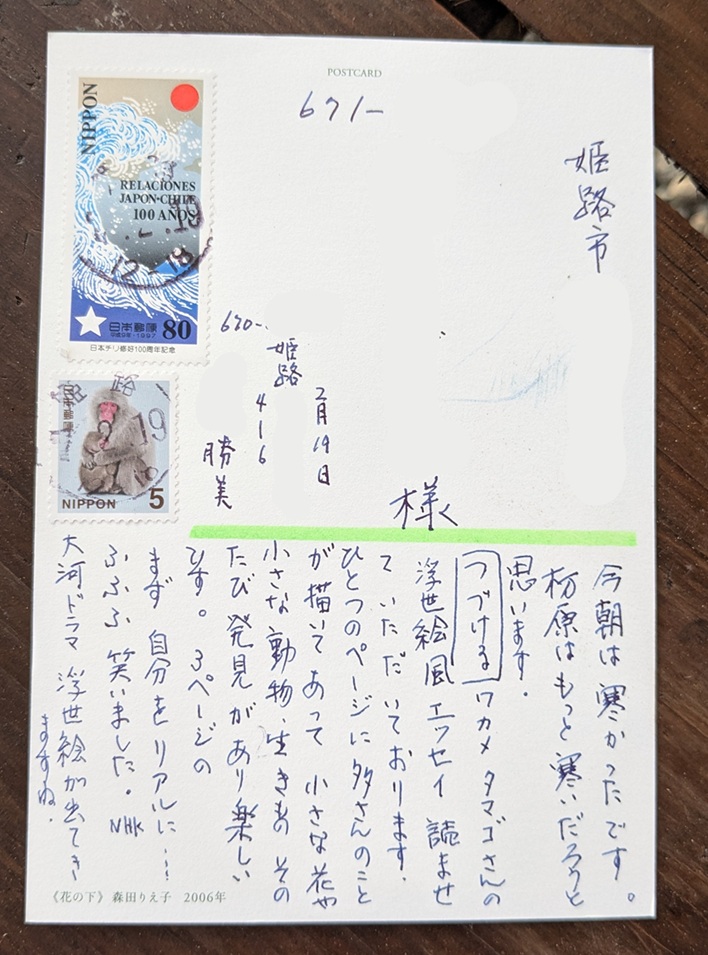 POSTCARD
671-
姫路市
様
NIPPON
RELACIONES
JAPON・CHILE
100 AÑOS
12-18
日本郵便 80
平成9年・1997
日本チリ修好100周年記念
日本郵便
路
19
NIPPON 5
670-
2月19日
姫路
416
勝美
今朝は寒かったです。
栃原はもっと寒いだろうと
思います.
「つづける」ワカメタマゴさんの
浮世絵風エッセイ 読ませ
ていただいております.
ひとつのページに多さんのこと
が描いてあって 小さな花や
小さな動物、生きもの その
たび発見があり楽しい
ひす。3ページの
まず 自分をリアルに…
ふふふ 笑いました。NHK
大河ドラマ 浮世絵が出てき
ますね.
《花の下》 森田りえ子 2006年